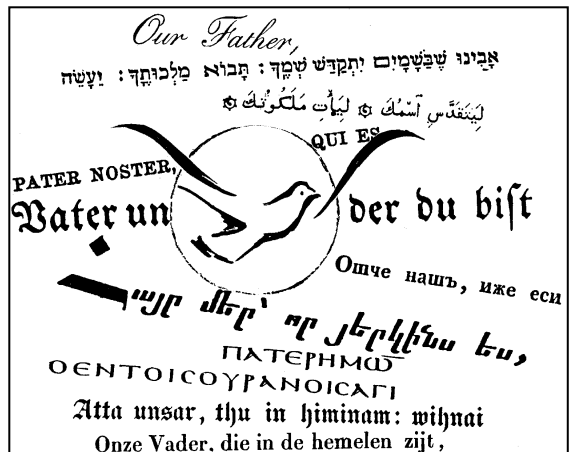 Our Father,
אָבִינוּ שֶׁבַּשָּׁמַיִם יִתְקַדַּשׁ שְׁמֶךָ: תָּבוֹא מַלְכוּתֶךָ: יֵעָשֶׂה
لِيَتَقَدَّسِ ٱسْمُكَ ۞ لِيَأْتِ مَلَكُوتُكَ ۞
QUI ES
PATER NOSTER,
Vater un der du bist
Отче нашъ, иже еси
Հայր մեր՝ որ յերկինս ես,
ΠΑΤΕΡΗΜΩ̅
ΟΕΝΤΟΙϹΟΥΡΑΝΟΙϹΑΓΙ
Atta unsar, thu in himinam: wihnai
Onze Vader, die in de hemelen zijt,